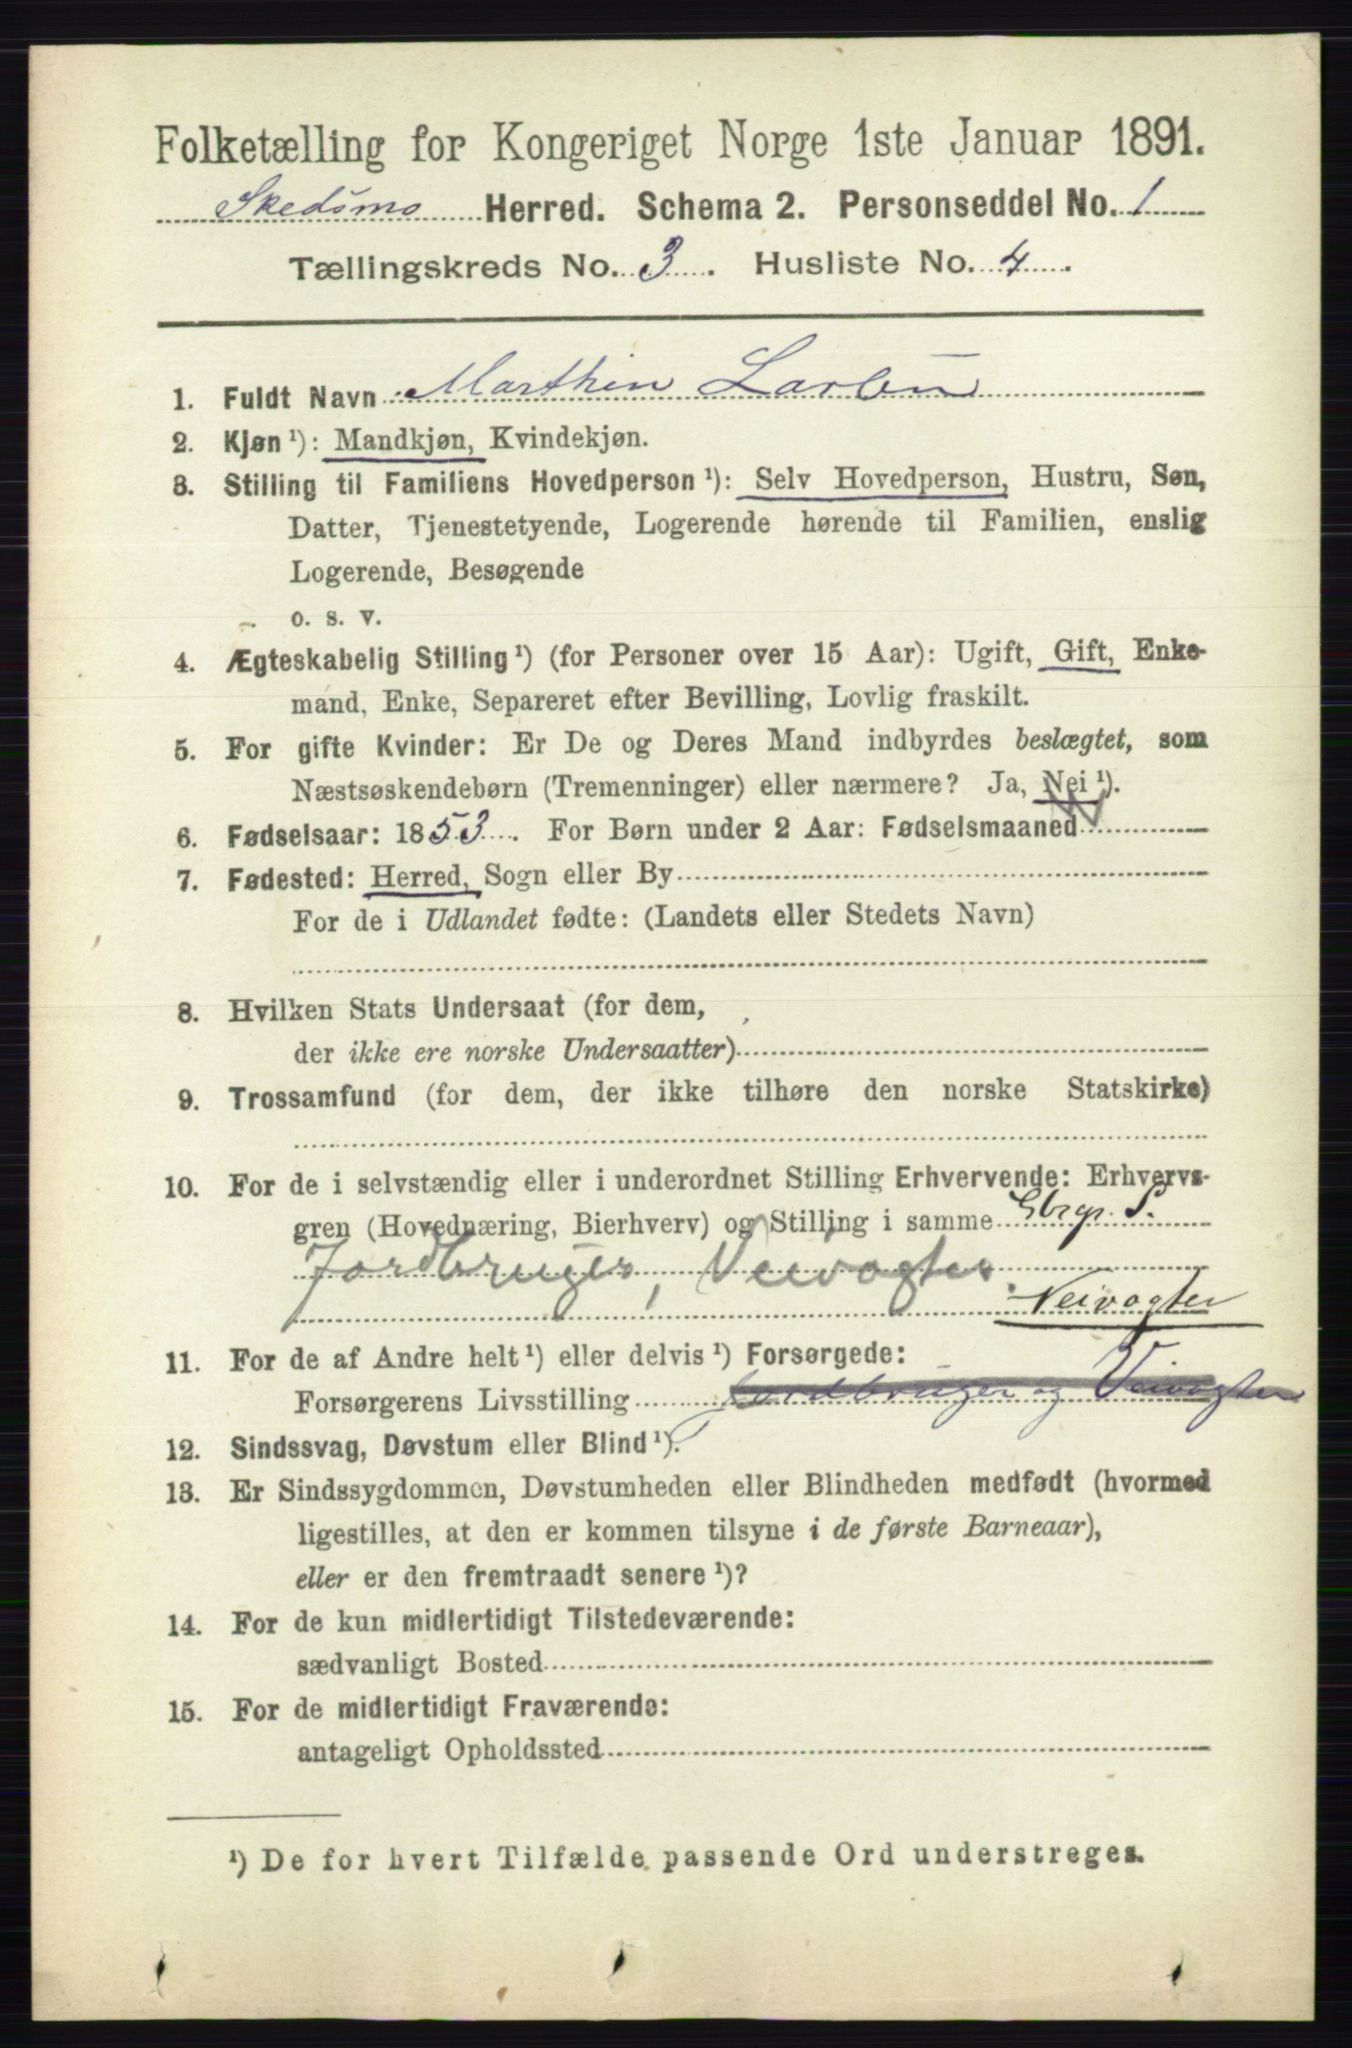 Folketælling for Kongeriget Norge 1ste Januar 1891.
Skedsmo Herred. Schema 2. Personseddel No. 1
Tællingskreds No. 3. Husliste No. 4.
1. Fuldt Navn Marthin Larsen
2. Kjøn ¹): Mandkjøn, Kvindekjøn.
3. Stilling til Familiens Hovedperson ¹): Selv Hovedperson, Hustru, Søn,
Datter, Tjenestetyende, Logerende hørende til Familien, enslig
Logerende, Besøgende
o. s. v.
4. Ægteskabelig Stilling ¹) (for Personer over 15 Aar): Ugift, Gift, Enke-
mand, Enke, Separeret efter Bevilling, Lovlig fraskilt.
5. For gifte Kvinder: Er De og Deres Mand indbyrdes beslægtet, som
Næstsøskendebørn (Tremenninger) eller nærmere? Ja, Nei ¹).
6. Fødselsaar: 1853. For Børn under 2 Aar: Fødselsmaaned
7. Fødested: Herred, Sogn eller By
For de i Udlandet fødte: (Landets eller Stedets Navn)
8. Hvilken Stats Undersaat (for dem,
der ikke ere norske Undersaatter)
9. Trossamfund (for dem, der ikke tilhøre den norske Statskirke)
10. For de i selvstændig eller i underordnet Stilling Erhvervende: Erhvervs-
gren (Hovednæring, Bierhverv) og Stilling i samme Gbrgr. S.
Jordbruger, Veivogter.
Veivogter
11. For de af Andre helt ¹) eller delvis ¹) Forsørgede:
Forsørgerens Livsstilling Jordbruger og Veivogter
12. Sindssvag, Døvstum eller Blind ¹).
13. Er Sindssygdommen, Døvstumheden eller Blindheden medfødt (hvormed
ligestilles, at den er kommen tilsyne i de første Barneaar),
eller er den fremtraadt senere ¹)?
14. For de kun midlertidigt Tilstedeværende:
sædvanligt Bosted
15. For de midlertidigt Fraværende:
antageligt Opholdssted
¹) De for hvert Tilfælde passende Ord understreges.